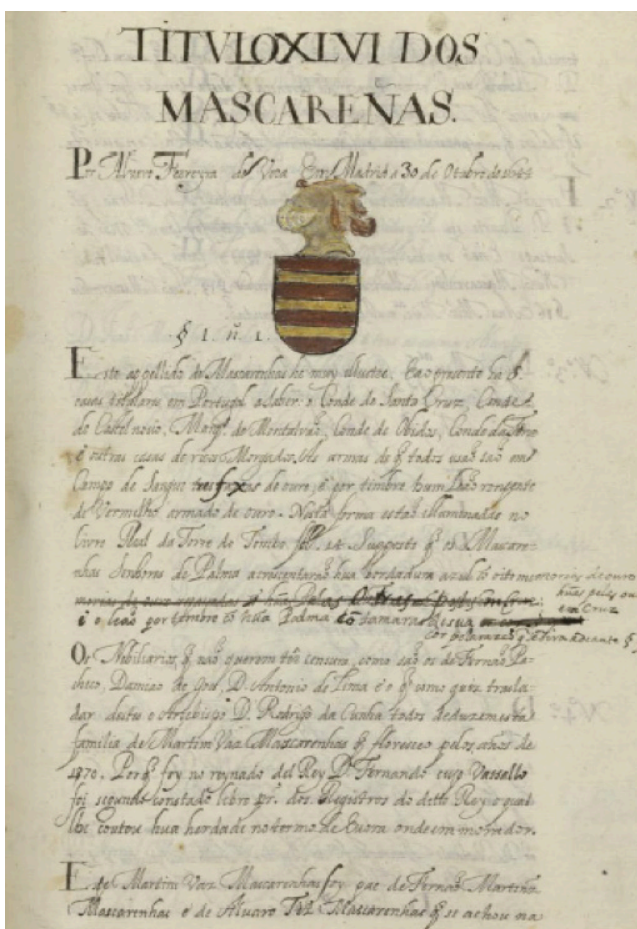 TITVLO XLVI DOS
MASCAREÑAS.
Por Alvaro Ferreyra de Vera Em Madrid a 30 de Otubro de 1644
§ 1 ñ. 1.
Este appellido de Mascarenhas he muy illustre, E ao presente ha 5.
casas titulares em Portugal a saber o Conde de Santa Cruz, Conde
de Castel novo, Marq. de Montalvão, Conde de Obidos, Conde da Torre
e outras casas de ricos Morgados. As armas de q̃ todos usaõ saõ em
Campo de Sangue tres fxas de ouro, e por timbre hum Leaõ rompente
de Vermelho armado de ouro. Nesta forma estaõ illuminadas no
livro Real da Torre do Tombo fol. 14 Supposto q̃ os Mascare-
nhas Senhores de Palma acrescentaraõ hua bordadura azul cõ oito memorias de ouro
hũas pelas outras
em Cruz
e o leaõ por timbre cõ hũa Palma cõ tamaras
Os Nobiliarios, q̃ naõ querem tẽr censura, como saõ os de Fernaõ Pa-
checo, Damiao de Goes, D. Antonio de Lima e o q̃ como quiz trasla-
dar destes o Arcebispo D. Rodrigo da Cunha todos deduzem esta
familia de Martim Vaz Mascarenhas q̃ floresceo pelos annos de
1370. Porq̃ foy no reynado del Rey D. Fernando cujo Vassallo
foi segundo consta do libro pr.º dos Registros do detto Rey o qual
lhe coutou hua herdade no termo de Evora onde era morador.
Este Martim Vaz Mascarenhas foy pae de Fernaõ Martins
Mascarenhas e de Alvaro Mascarenhas q̃ se achou na